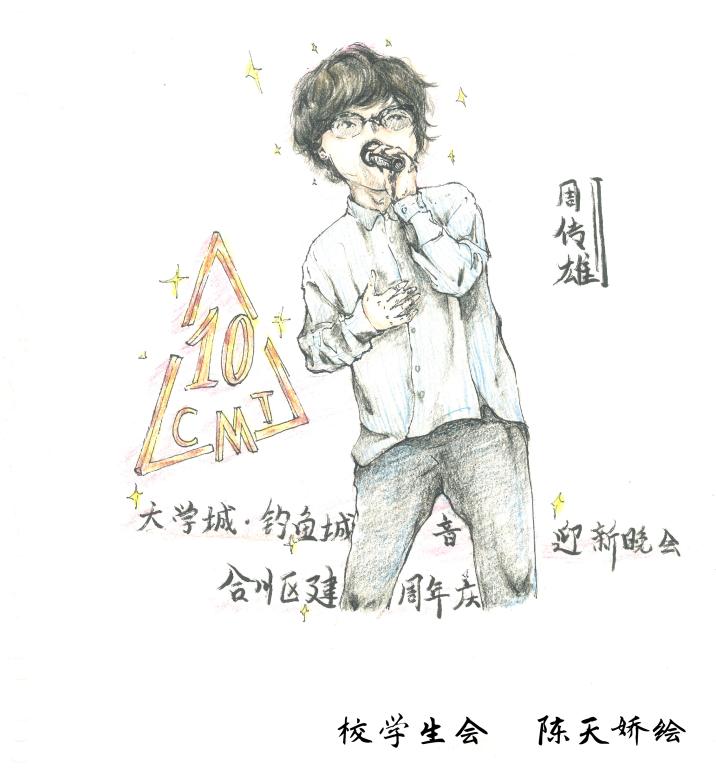 周传雄
10
CMT
大学城·钓鱼城 音 迎新晚会
合川区建 周年庆
校学生会 陈天娇绘